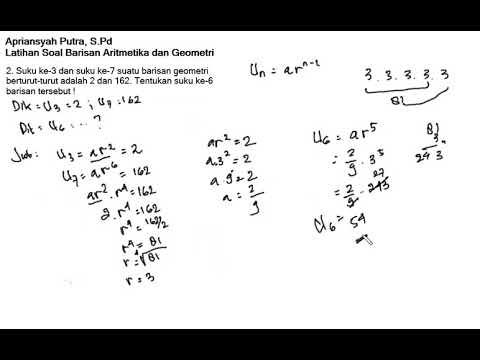 Apriansyah Putra, S.Pd
Latihan Soal Barisan Aritmetika dan Geometri
2. Suku ke-3 dan suku ke-7 suatu barisan geometri
berturut-turut adalah 2 dan 162. Tentukan suku ke-6
barisan tersebut !
Dik = U₃ = 2 ; U₇ = 162
Dit = U₆ = . . . ?
Jwb:
U₃ = ar² = 2
U₇ = ar⁶ = 162
ar² . r⁴ = 162
2 . r⁴ = 162
r⁴ = 162/2
r⁴ = 81
r = ⁴√81
r = 3
ar² = 2
a.3² = 2
a.9 = 2
a = 2/9
Uₙ = arⁿ⁻¹
3 . 3 . 3 . 3 . 3
81
U₆ = ar⁵
= 2/9 . 3⁵
= 2/9 . 243 27
U₆ = 54
81
3 ×
243